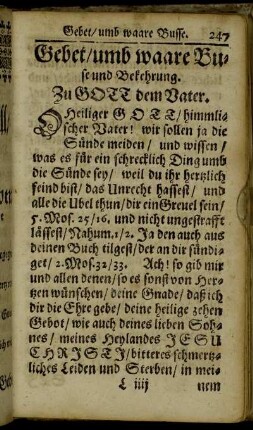 Gebet/umb waare Busse. 247
Gebet/umb waare Bu-
se und Bekehrung.
Zu GOTT dem Vater.
O Heiliger GOTT/himmli-
scher Vater! wir sollen ja die
Sünde meiden/ und wissen/
was es für ein schrecklich Ding umb
die Sünde sey/ weil du ihr hertzlich
feind bist/ das Unrecht hassest/ und
alle die Ubel thun/dir ein Greuel sein/
5. Mos. 25/16. und nicht ungestrafft
lässest/ Nahum. 1/2. Ja den auch aus
deinen Buch tilgest/der an dir sündi-
get/ 2. Mos. 32/33. Ach! so gib mir
und allen denen/so es sonst von Her-
tzen wünschen/ deine Gnade/ daß ich
dir die Ehre gebe/ deine heilige zehen
Gebot/ wie auch deines lieben Soh-
nes / meines Heylandes JESU
CHRISTI/bitteres schmertz-
liches Leiden und Sterben/ in mei-
L iiij nem